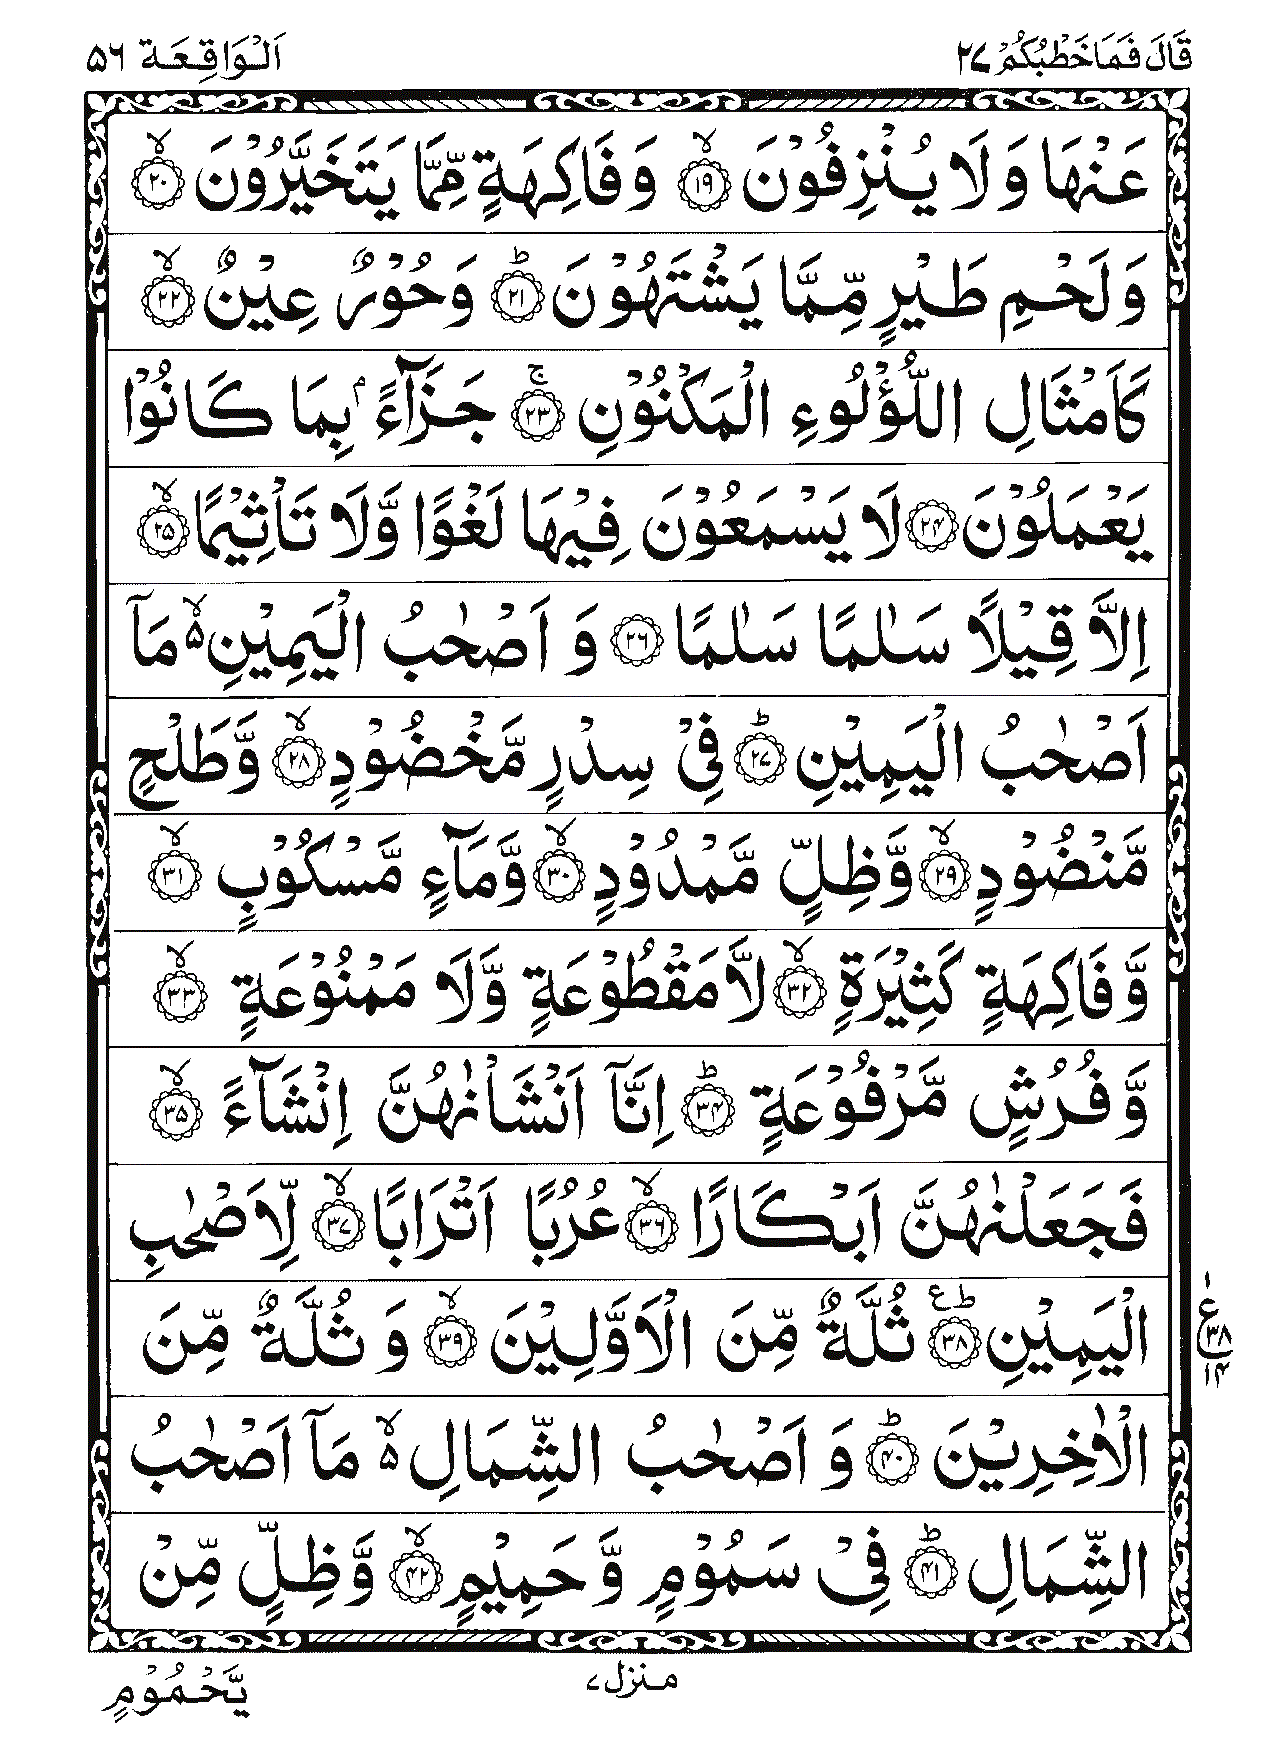 قَالَ فَمَا خَطْبُكُمْ ٢٧ اَلْوَاقِعَة ٥٦
عَنْهَا وَ لَا يُنْزِفُوْنَ ۙ﴿۱۹﴾ وَ فَاكِهَةٍ مِّمَّا يَتَخَيَّرُوْنَ ۙ﴿۲۰﴾
وَ لَحْمِ طَيْرٍ مِّمَّا يَشْتَهُوْنَ ؕ﴿۲۱﴾ وَ حُوْرٌ عِيْنٌ ۙ﴿۲۲﴾
كَاَمْثَالِ اللُّؤْلُوءِ الْمَكْنُوْنِ ۚ﴿۲۳﴾ جَزَآءًۢ بِمَا كَانُوْا
يَعْمَلُوْنَ ﴿۲۴﴾ لَا يَسْمَعُوْنَ فِيْهَا لَغْوًا وَّ لَا تَاْثِيْمًا ۙ﴿۲۵﴾
اِلَّا قِيْلًا سَلٰمًا سَلٰمًا ﴿۲۶﴾ وَ اَصْحٰبُ الْيَمِيْنِ ۙ۵ مَاۤ
اَصْحٰبُ الْيَمِيْنِ ؕ﴿۲۷﴾ فِيْ سِدْرٍ مَّخْضُوْدٍ ۙ﴿۲۸﴾ وَّ طَلْحٍ
مَّنْضُوْدٍ ۙ﴿۲۹﴾ وَّ ظِلٍّ مَّمْدُوْدٍ ۙ﴿۳۰﴾ وَّ مَآءٍ مَّسْكُوْبٍ ۙ﴿۳۱﴾
وَّ فَاكِهَةٍ كَثِيْرَةٍ ۙ﴿۳۲﴾ لَّا مَقْطُوْعَةٍ وَّ لَا مَمْنُوْعَةٍ ۙ﴿۳۳﴾
وَّ فُرُشٍ مَّرْفُوْعَةٍ ؕ﴿۳۴﴾ اِنَّاۤ اَنْشَاْنٰهُنَّ اِنْشَآءً ۙ﴿۳۵﴾
فَجَعَلْنٰهُنَّ اَبْكَارًا ۙ﴿۳۶﴾ عُرُبًا اَتْرَابًا ۙ﴿۳۷﴾ لِّاَصْحٰبِ
الْيَمِيْنِ ؕ ع﴿۳۸﴾ ثُلَّةٌ مِّنَ الْاَوَّلِيْنَ ۙ﴿۳۹﴾ وَ ثُلَّةٌ مِّنَ
۱ ع ۳۸ ۱۴
الْاٰخِرِيْنَ ؕ﴿۴۰﴾ وَ اَصْحٰبُ الشِّمَالِ ۙ۵ مَاۤ اَصْحٰبُ
الشِّمَالِ ؕ﴿۴۱﴾ فِيْ سَمُوْمٍ وَّ حَمِيْمٍ ۙ﴿۴۲﴾ وَّ ظِلٍّ مِّنْ
منزل ۷ يَّحْمُوْمٍ